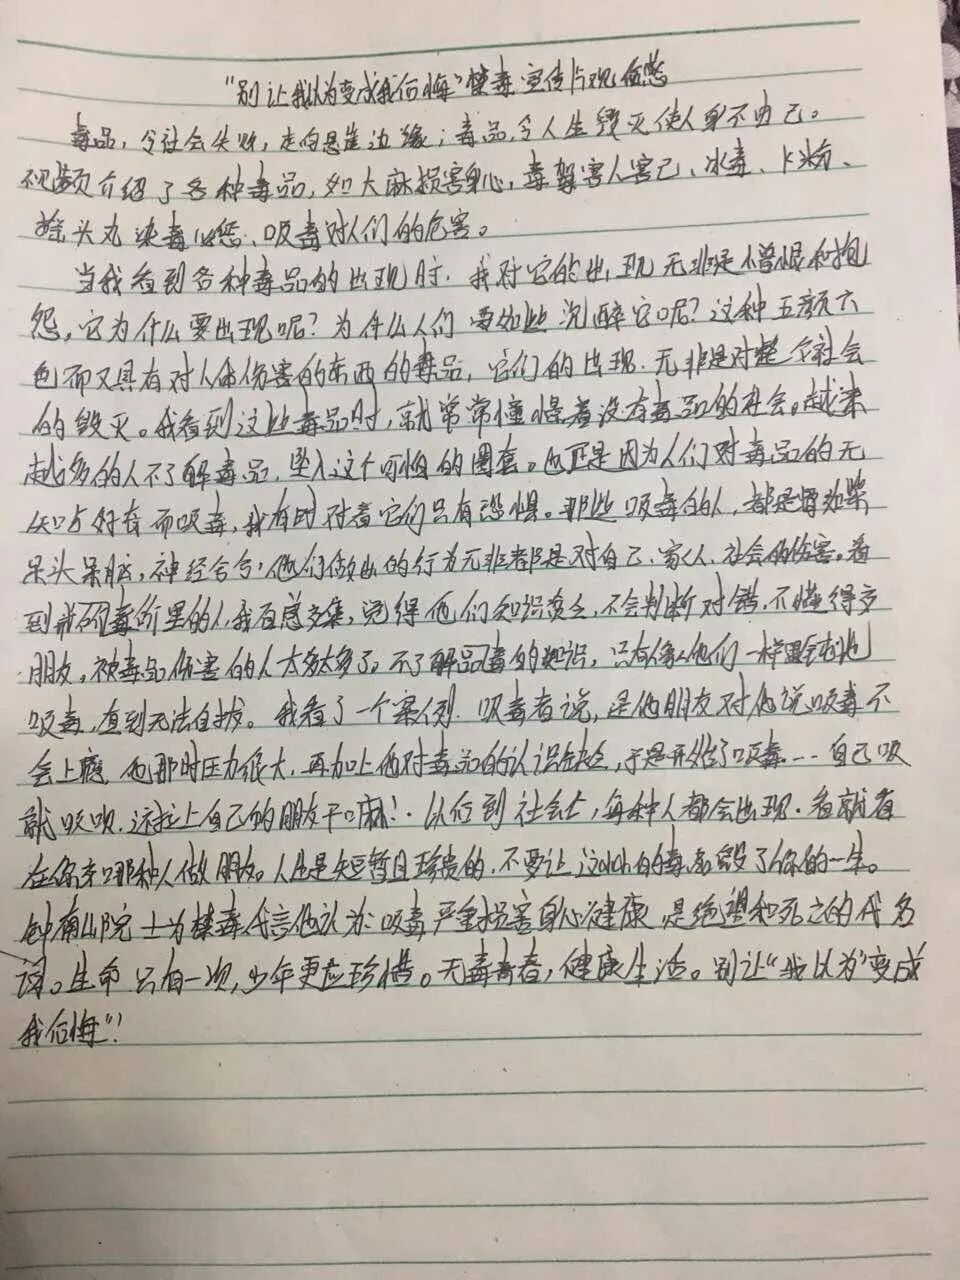 "别让我以为变成我后悔"禁毒宣传片观后感
毒品,令社会失败,走向悬崖边缘;毒品,令人生毁灭使人身不由己。
视频介绍了各种毒品,如大麻损害身心,毒驾害人害己、冰毒、K粉、
摇头丸染毒必惩、吸毒对人们的危害。
当我看到各种毒品的出现时.我对它的出现无非是憎恨和抱
怨,它为什么要出现呢?为什么人们要如此沉醉它呢?这种五颜六
色而又具有对人体伤害的东西的毒品,它们的出现.无非是对整个社会
的毁灭。我看到这些毒品时,就常常憧憬着没有毒品的社会。越来
越多的人不了解毒品,坠入这个可怕的圈套。也正是因为人们对毒品的无
知与好奇而吸毒,我有时对着它们只有恐惧。那些吸毒的人,都是骨瘦如柴
呆头呆脑,神经兮兮,他们做出的行为无非都是对自己、家人、社会的伤害,看
到戒毒所里的人,我百感交集,觉得他们知识贫乏,不会判断对错,不懂得交
朋友,被毒品伤害的人太多太多了。不了解毒品的知识,只有像他们一样地
吸毒,直到无法自拔。我看了一个案例.吸毒者说,是他朋友对他说吸毒不
会上瘾.他那时压力很大,再加上他对毒品的认识缺乏,于是开始了吸毒……自己吸
就吸呗.还拉上自己的朋友干嘛!.以后到社会上,每种人都会出现.看就看
在你走哪种人做朋友。人生是短暂且珍贵的,不要让这小小的毒品毁了你的一生。
钟南山院士为禁毒代言他认为:吸毒严重损害身心健康是绝望和死亡的代名
词。生命只有一次,少年更应珍惜。无毒青春,健康生活。别让"我以为"变成
我后悔"!